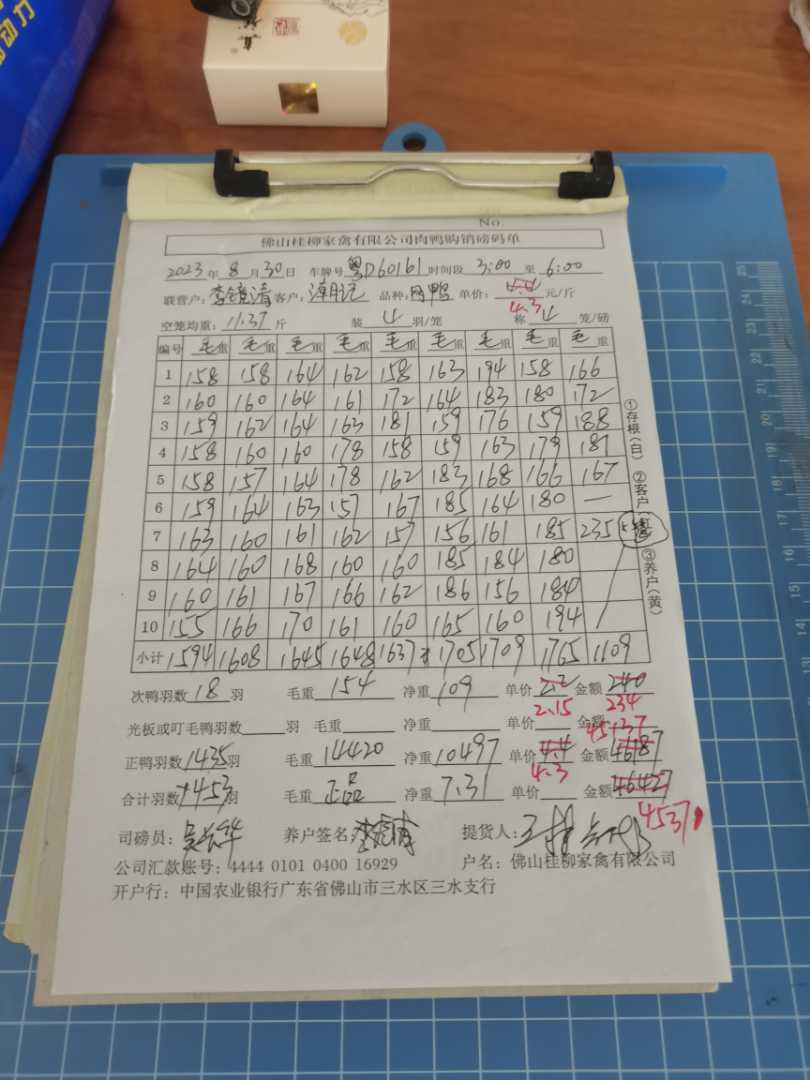 动力
No.
佛山桂柳家禽有限公司肉鸭购销磅码单
2023年 8月30日 车牌号粤D60161 时间段 3:00 至 6:00
联营户: 客户: 品种: 肉鸭 单价: 4.4 4.3 元/斤
空笼均重: 11.37 斤 装 4 羽/笼 称 4 笼/磅
编号 毛重 毛重 毛重 毛重 毛重 毛重 毛重 毛重 毛重
1 158 158 164 162 158 163 194 158 166
2 160 160 164 161 172 164 183 180 172
3 159 162 164 163 181 159 176 159 188
4 158 160 160 178 158 159 163 179 181
5 158 157 164 178 162 183 168 166 167
6 159 164 163 157 167 185 164 180 —
7 163 160 161 162 157 156 161 185 235
8 164 160 168 160 160 185 184 180
9 160 161 167 166 162 186 156 184
10 155 166 170 161 160 165 160 194
小计 1594 1608 1645 1648 1637 1705 1709 1765 1109
①存根(白) ②客户 ③养户(黄)
次鸭羽数 18 羽 毛重 154 净重 109 单价 2.2 金额 240
2.15 234
光板或叮毛鸭羽数 羽 毛重 净重 单价 金额
45137
正鸭羽数 1435 羽 毛重 14420 净重 10497 单价 4.4 金额 46187
4.3
合计羽数 1453 羽 毛重 正品 净重 7.31 单价 金额 46427
45371
司磅员: 养户签名: 提货人:
公司汇款账号: 4444 0101 0400 16929 户名: 佛山桂柳家禽有限公司
开户行: 中国农业银行广东省佛山市三水区三水支行